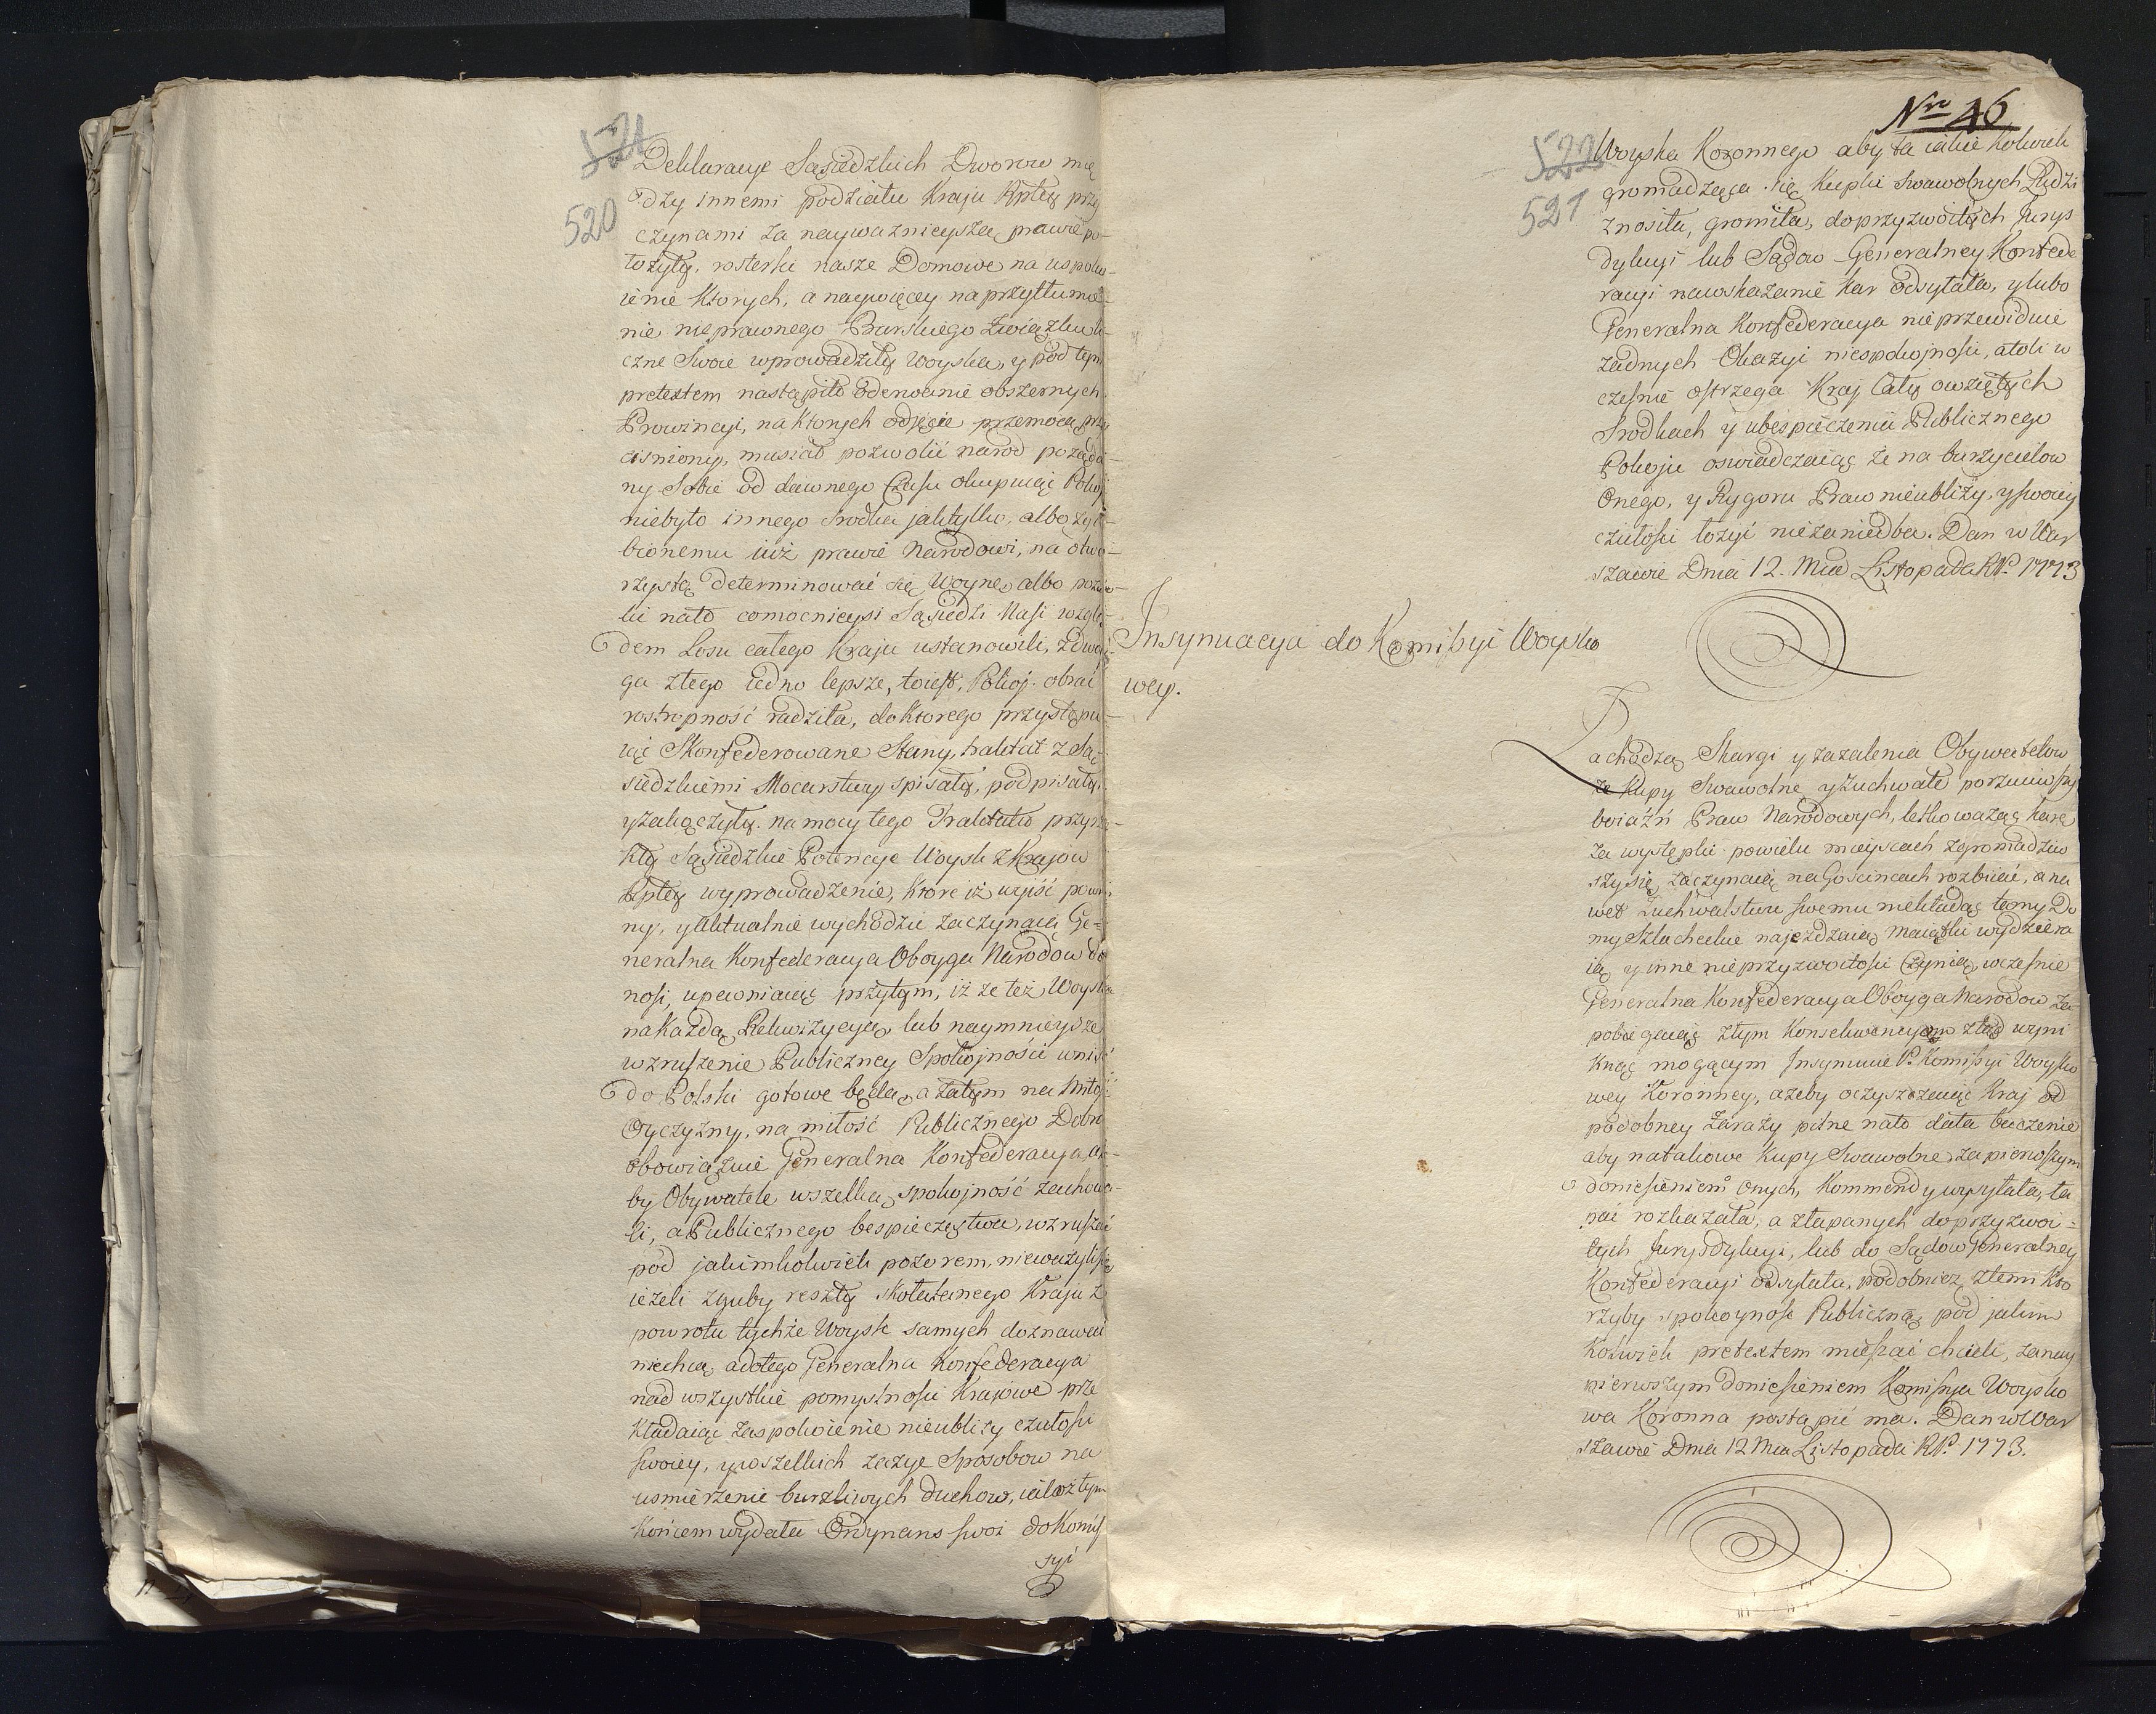 521
520
Deklaracye Sąsiedzkich Dworow mię
dzy innemi podziału Kraju Rptey przy
czynami za naywaznieyszą prawie po-
łozyły, rosterki nasze Domowe na uspoko-
ienie Ktorych, a naywięcey na przytłumie-
nie nieprawnego Barskiego Związku li-
czne Swoie wprowadziły Woyska, y pod tym
pretextem nastąpiło oderwanie obszernych
Prowincyi, na Ktorych odjęcie przemocą przy
cisniony, musiał pozwolić narod pożąda-
ny Sobie od dawnego Czasu okupuiąc Pokoj
niebyło innego Srodka jak tylko, albo zgu-
bionemu iuż prawie Narodowi, na otwo-
rzystą determinować się Woynę, albo pozwo-
lić nato co mocnieysi Sąsiedzi Nasi wzglę-
dem Losu całego Kraju ustanowili, z dwoy-
ga złego iedno lepsze, to iest, Pokoj obrać
rostropność radziła, do Ktorego przystępu-
iąc Skonfederowane Stany, traktat z Są-
siedzkiemi Mocarstwy spisały, podpisały,
y zakączyły. na mocy tego Traktatu przyrze-
kły Sąsiedzkie Potencye Woysk z Krajow
Rptey wyprowadzenie, Ktore iż wyjść powin
ny, y Aktualnie wychodzić zaczynaią Ge-
neralna Konfederacya Oboyga Narodow do
nosi, upewniaiąc przytym, iż że też Woyska
na Każdą Rekwizycyą, lub naymnieysze
wzruszenie Publiczney Spokojności wniść
do Polski gotowe będą, a zatym na Miłość
Oyczyzny, na miłość Publicznego Dobra
obowiązuie Generalna Konfederacya, a-
by Obywatele wszelką spokojność zachowa-
li, a Publicznego bespieczęstwa, wzruszać
pod jakimkolwiek pozorem, nieważyli się
ieżeli zguby reszty skołatanego Kraju z
powrotu tychże Woysk samych doznawać
niechcą, a dotego Generalna Konfederacya
nad wszystkie pomyslnosci Krajowe prze
kładaiąc zaspokoienie nieubliży czułosci
swoiey, y wszelkich zażyie Sposobow na
usmierzenie burzliwych duchow, iakoż tym
końcem wydała Ordynans swoi do Komis
syi
Nro 46
522
521
Woyska Koronnego aby ta iakie kolwiek
gromadzące się Kupki swawolnych Ludzi
znosiła, gromiła, do przyzwoitych Jurys
dykcyi lub Sądow Generalney Konfede
racyi na wskazanie kar odsyłała, y lubo
Generalna Konfederacya nieprzewiduie
żadnych Okazyi niespokojnosci, atoli w
cześnie ostrzega Kraj Cały o wziętych
Srodkach y ubespieczeniu Publicznego
Pokoju oswiadczaiąc że na burzycielow
Onego, y Rygoru Praw nieubliży, y swoiey
czułosci łożyć niezaniedba. Dan w War
szawie Dnia 12. Mca Listopada RP. 1773
Insynuacya do Komissyi Woysko
wey.
Zachodzą Skargi y zazalenia Obywatelow
że Kupy Swawolne y zuchwałe porzuciwszy
boiaźń Praw Narodowych, lekko ważąc karę
za występki po wielu mieyscach zgromadziw
szy się, zaczynaią na Goscincach rozbiiać, a na
wet zuchwalstwu swemu niekładąc tamy Do
my Szlacheckie najeżdzaią, maiątki wydziera
ią y inne nieprzyzwoitosci czynią, wczesnie
Generalna Konfederacya Oboyga Narodow za
pobiegaiąc złym Konsekwencyom ztąd wyni
knąć mogącym Insynuuie P. Komissyi Woysko
wey Koronney, ażeby oczyszczaiąc Kraj od
podobney Zarazy pilne nato dała baczenie
aby natakowe Kupy Swawolne, za pierwszym
doniesieniem onych, Kommendy wysyłała, ła
pać rozkazała, a złapanych do przyzwoi-
tych Jurysdykcyi, lub do Sądow Generalney
Konfederacyi odsyłała, podobnież z temi Kto
rzyby spokoynosc Publiczną, pod jakim
kolwiek pretextem mieszać chcieli, za nay
pierwszym doniesieniem Komissya Woysko
wa Koronna postąpić ma. Dan w War
szawie Dnia 12 Mca Listopada RP. 1773.